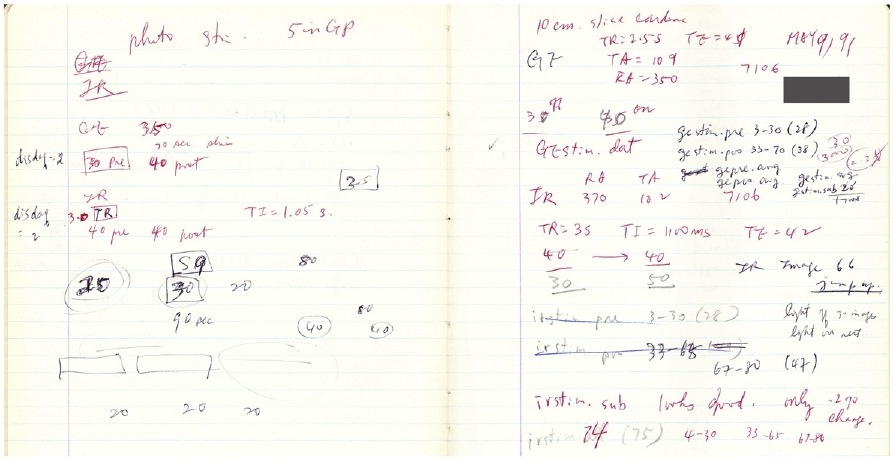 photo stim. 5inGP
GE
IR
GE 350
70 sec
disdaq=2 30 pre 40 post
3.5
IR
disdaq = 2 3.0 TR TI = 1.05 s.
40 pre 40 post
59 80
25 30 20
90 sec 80
40 40
20 20 20
10 cm. slice
TR = 2.5 s TE = 4 MAY 9, 91
GE TA = 109
RA = 350 7106
30 off on
GEstim. dat
gestim.pre 3-30 (28)
gestim.pos 33-70 (38)
gepre.avg
gepos.avg
gestim.avg
gestim.sub
RA TA
IR 370 102 7106
TR = 3S TI = 1100ms TE = 42
40 → 40
30 50
IR Image 66
jump up.
irstim pre 3-30 (28)
light off 30 images
light on next
irstim pos 33-68
67-80 (47)
irstim. sub looks good. only ~2%
change.
irstim 74 (75) 4-30 33-65 67-80